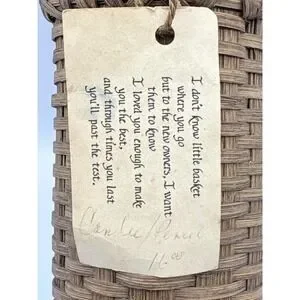 I don't know little basket
where you go
but to the new owners, I want
them to know
I loved you enough to make
you the best,
and through times you last
you'll past the test.